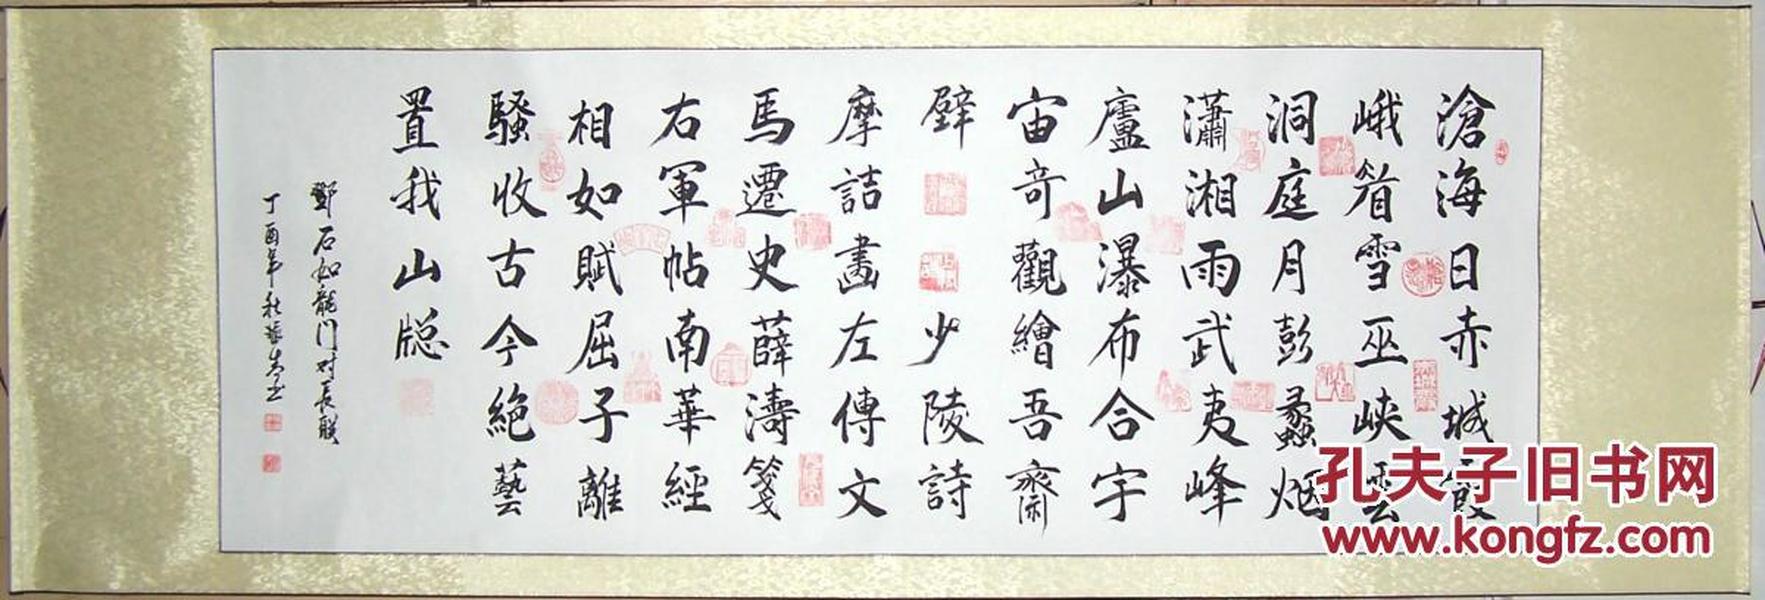 滄海日赤城霞
峨眉雪巫峽雲
洞庭月彭蠡烟
瀟湘雨武夷峰
廬山瀑布合宇
宙奇觀繪吾齋
壁
少陵詩
摩詰畫左傳文
馬遷史薛濤箋
右軍帖南華經
相如賦屈子離
騷收古今絕藝
置我山牕
鄧石如龍門对長联
丁酉年秋
孔夫子旧书网
www.kongfz.com